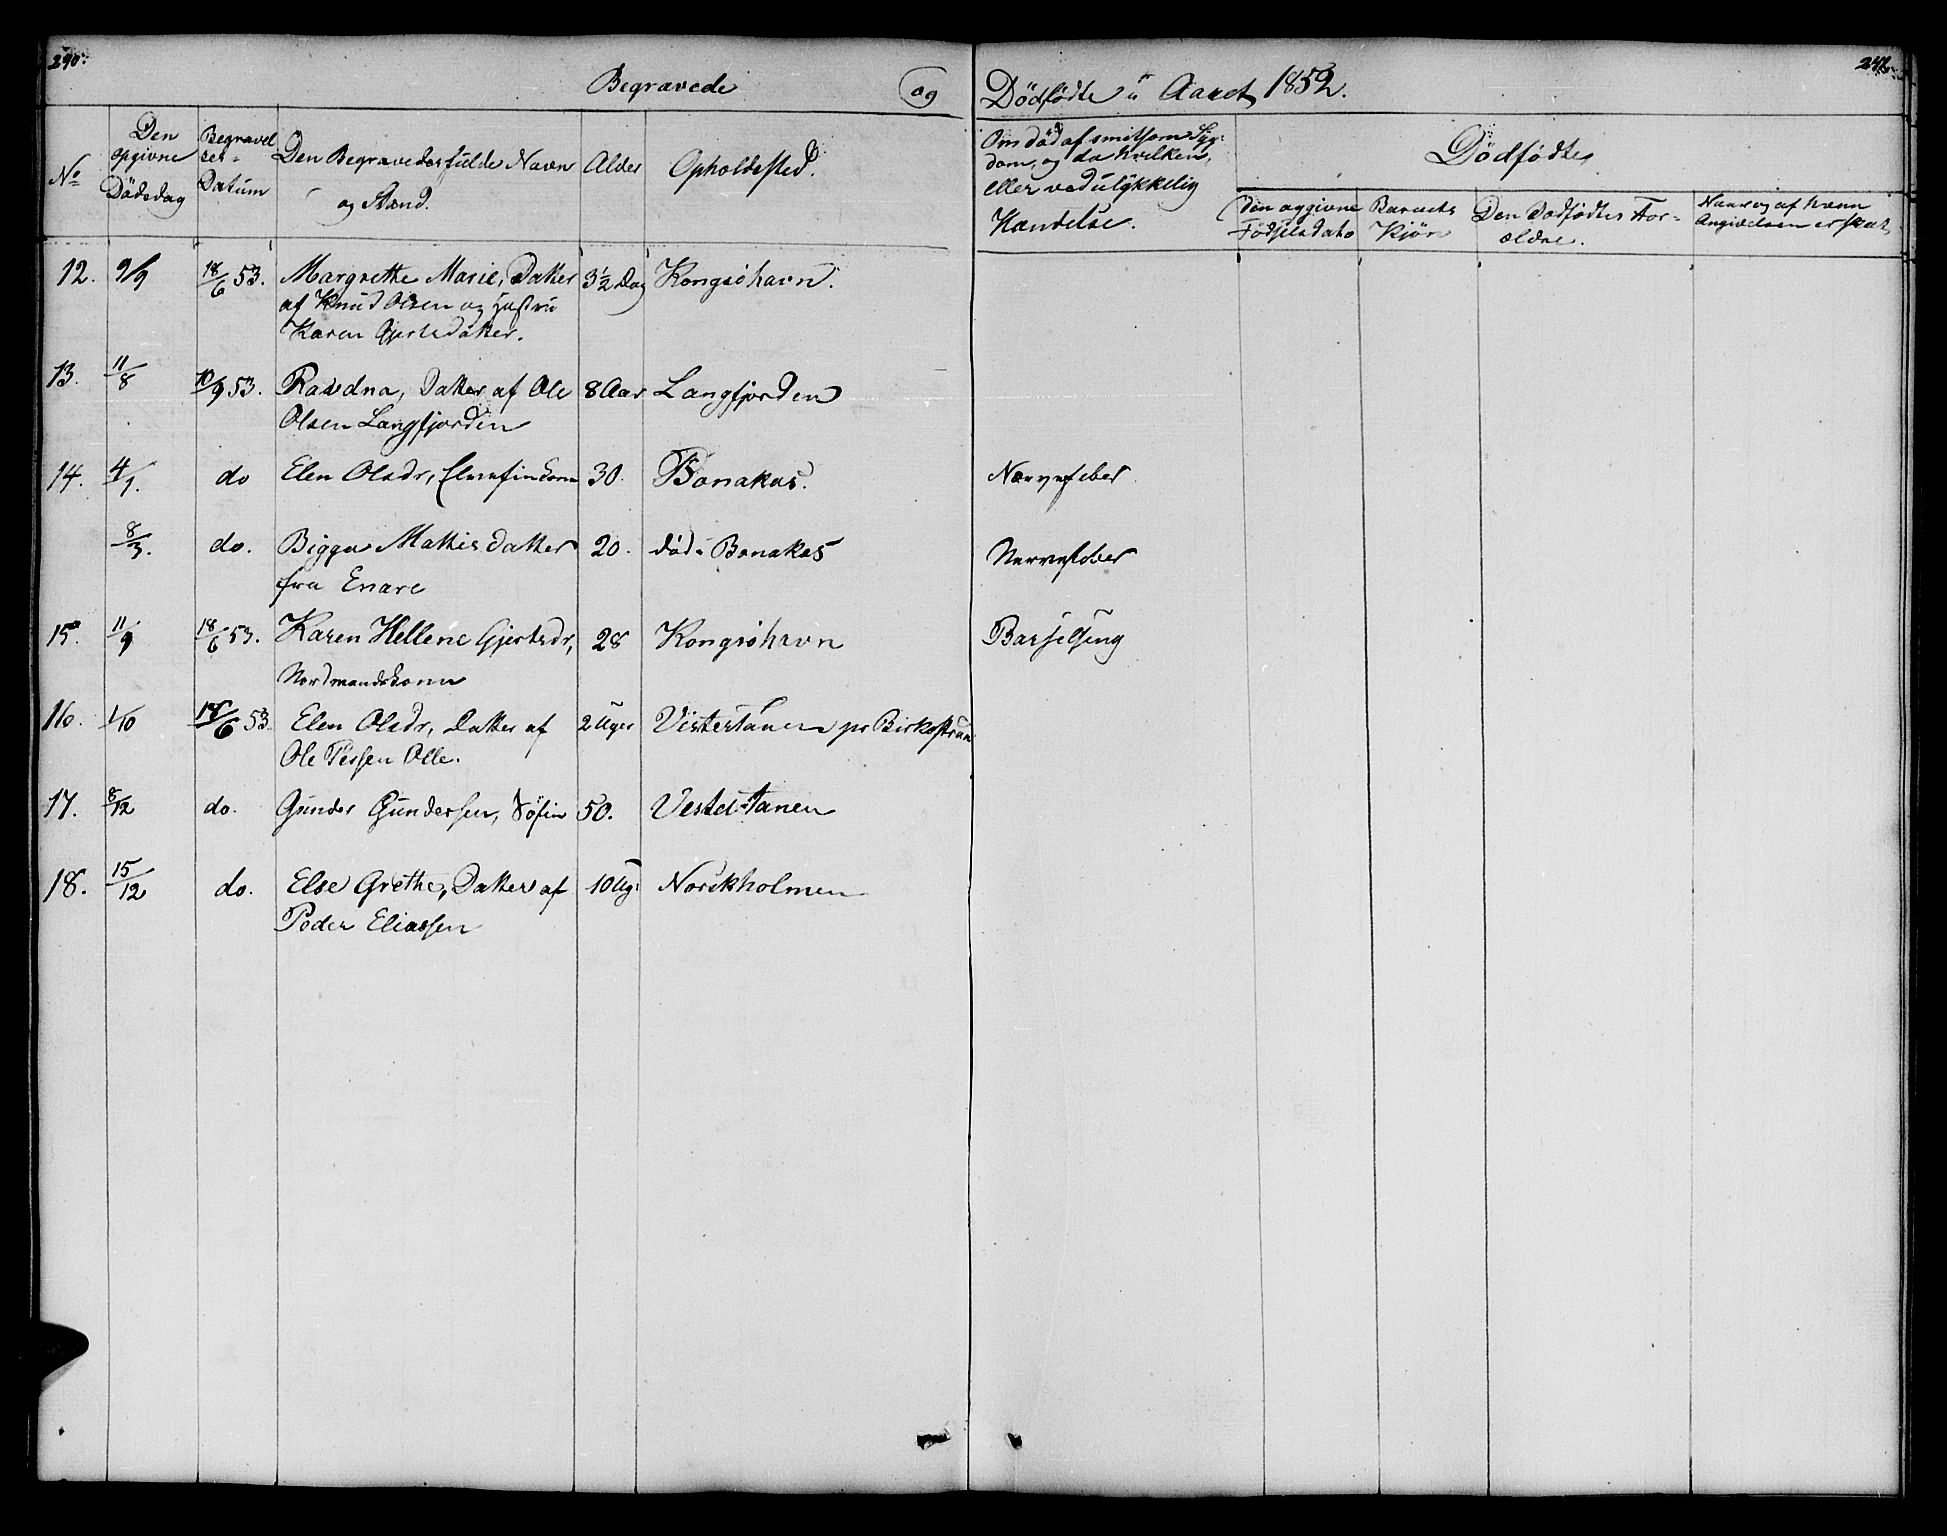 290.
Begravede og Dödfödte i Aaret 1852.
No
Den opgivne Dödsdag
Begravelses-Datum
Den Begravedes fulde Navn og Stand.
Alder
Opholdssted.
Om död af smitsom Syg-
dom, og da hvilken,
eller ved ulykkelig
Hændelse.
Dödfödte
Den opgivne Födselsdato
Barnets Kjön
Den Dödfödtes For-
ældre.
Naar og af hvem
Angivelsen er skeet
12. 9/9 18/6 53. Margrethe Marie, Datter 3½ Dag Kongsöhavn.
af Knud Olsen og Hustru
Karen Gjertsdatter.
13. 11/8 10/9 53. Ravdna, Datter af Ole 8 Aar Langfjorden
Olsen Langfjorden
14. 4/1. do Elen Olsdr, Elvefinkone 30. Bonakas. Nervefeber
8/3. do. Bigga Mathisdatter 20. död i Bonakas Nervefeber
fra Enare
15. 11/9 18/6 53. Karen Hellene Gjertsdr, 28 Kongsöhavn Barselseng
Nordmandskone
16. 1/10 18/6 53. Elen Olsdr, Datter af 2 Uger Vestertanen pr Birkestrand
Ole Olle.
17. 8/12 do. Gunder Gundersen, Söfin 50. Vestertanen
18. 15/12 do. Else Grethe, Datter af 10 Ug: Norskholmen
Peder Eliassen